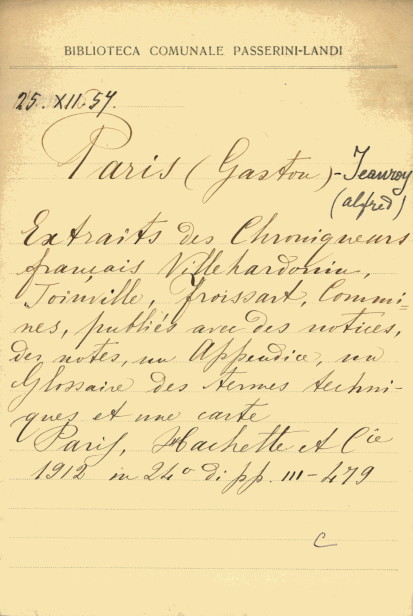 BIBLIOTECA COMUNALE PASSERINI-LANDI
25. XII. 54.
Paris (Gaston) - Jeanroy
(alfred)
Extraits des Chroniqueurs
français Villehardouin,
Joinville, Froissart, Commi=
nes, publiés avec des notices,
des notes, un Appendice, un
Glossaire des termes techni-
ques et une carte
Paris, Hachette et Cie
1912 in 24° di pp. III-479
C